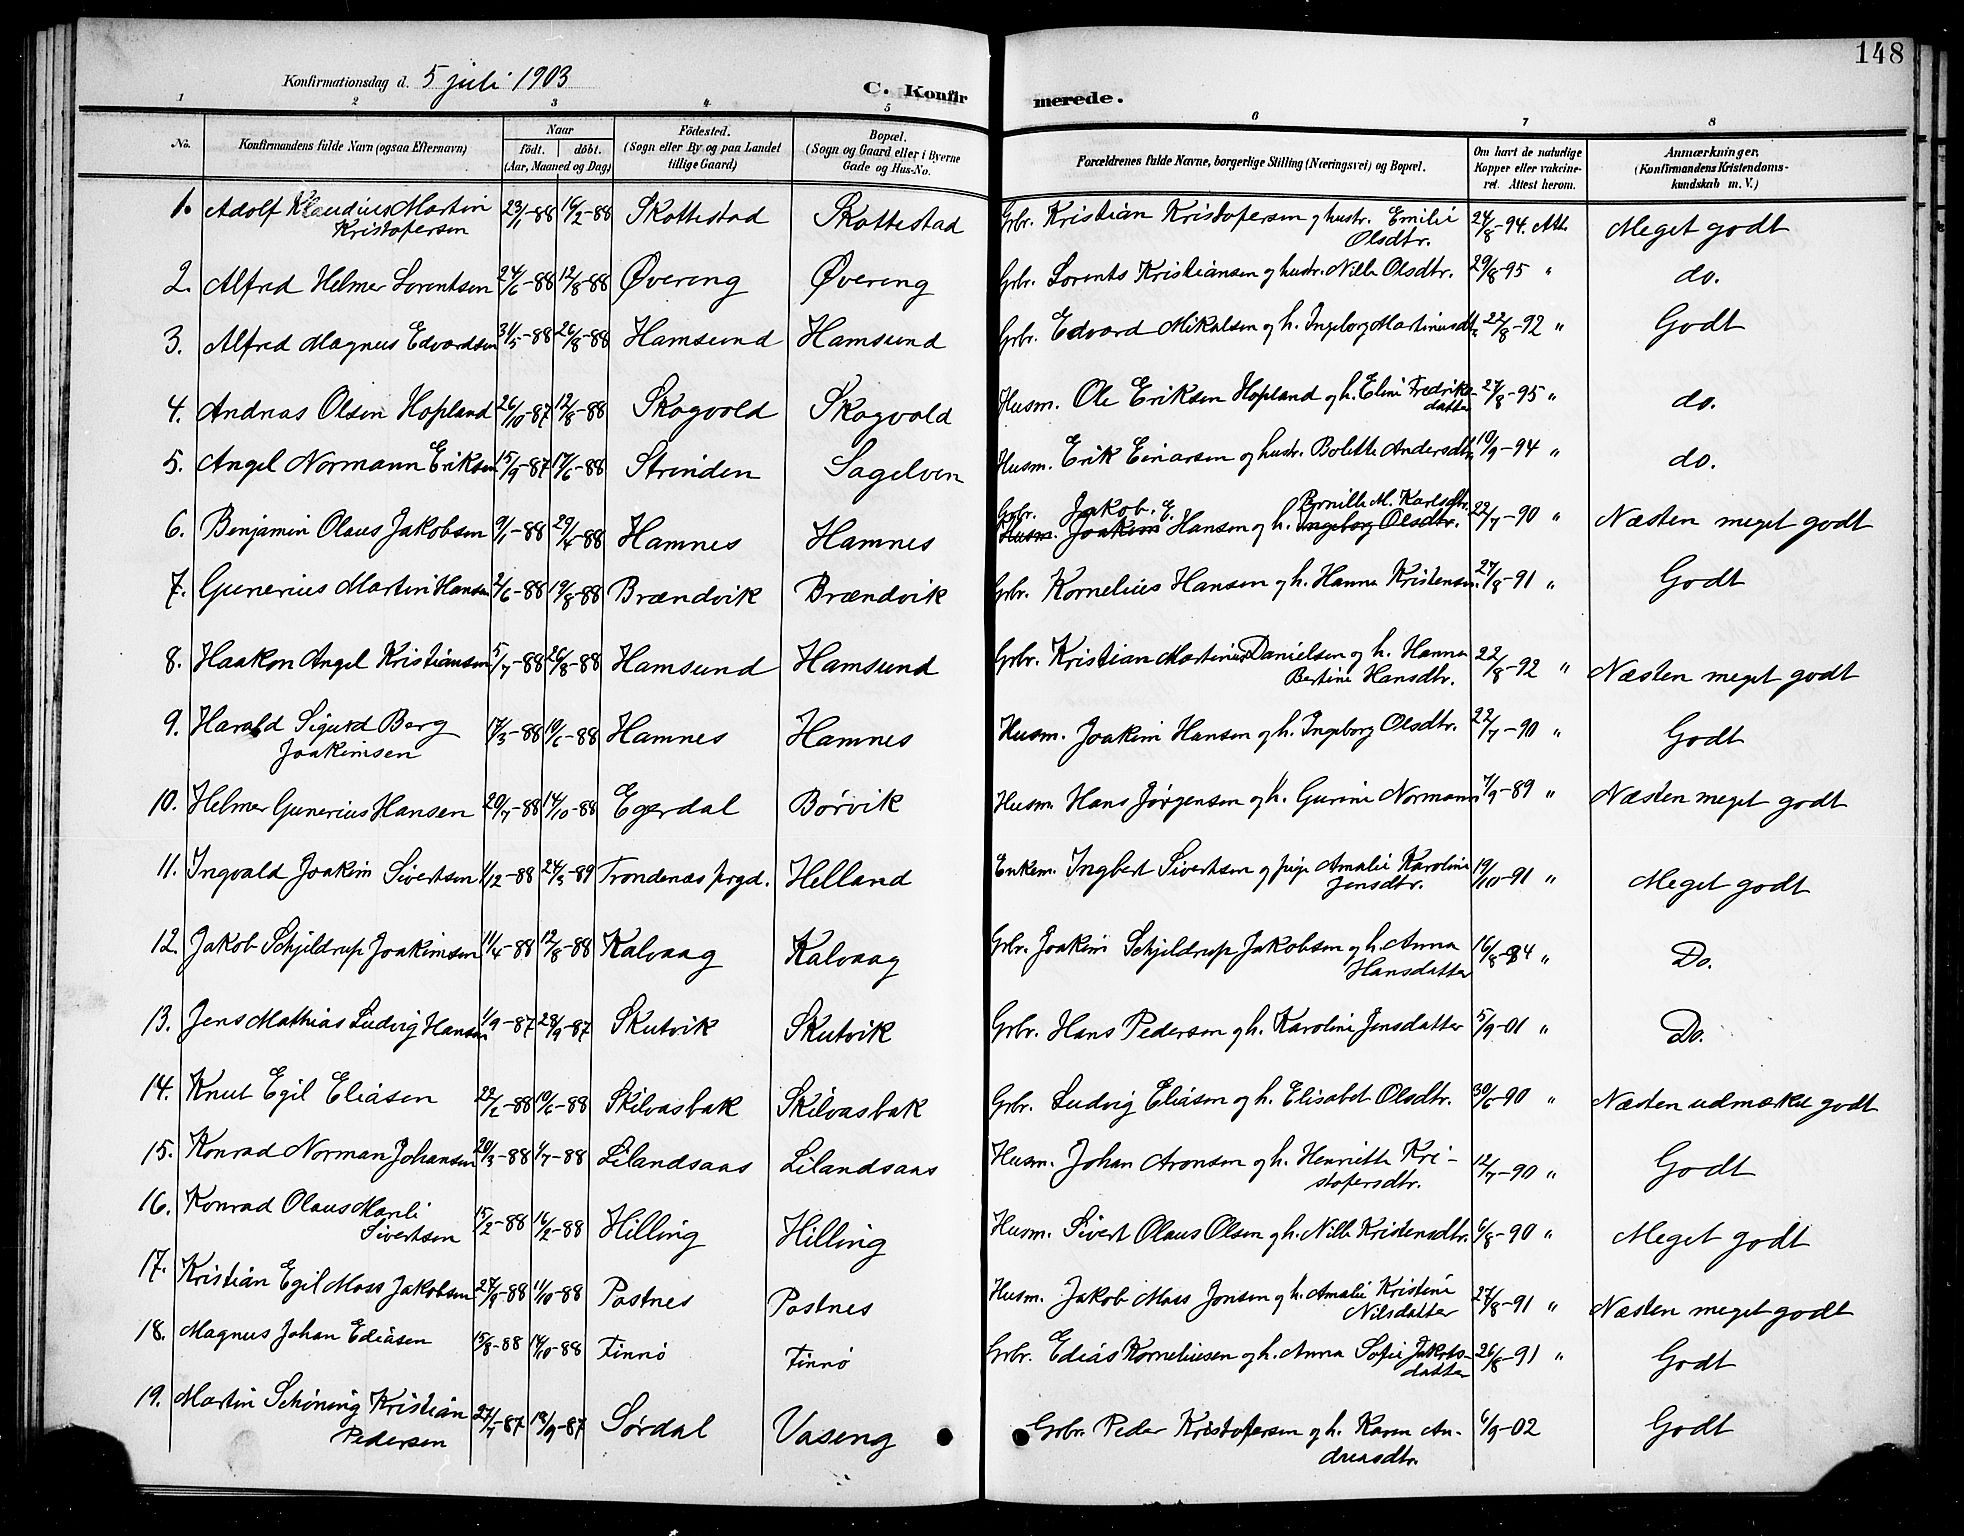 148
Konfirmationsdag d. 5 juli 1903
C. Konfir merede.
1 2 3 4 5 6 7 8
No.
Konfirmandens fulde Navn (ogsaa Efternavn)
Naar
födt. döbt.
(Aar, Maaned og Dag)
Födested.
(Sogn eller By og paa Landet
tillige Gaard)
Bopæl.
(Sogn og Gaard eller i Byerne
Gade og Hus-No.
Forældrenes fulde Navne, borgerlige Stilling (Næringsvei) og Bopæl.
Om havt de naturlige
Kopper eller vakcine-
ret. Attest herom.
Anmærkninger,
(Konfirmandens Kristendoms-
kundskab m. V.)
1. Adolf Klaudius Martin 23/1-88 16/2-88 Skottestad Skottestad Grbr. Kristian Kristofersen og hustr. Emilie 24/8-94. Att. Meget godt
Kristofersen Olsdtr.
2. Alfred Helmer Lorentsen 24/6-88 12/8-88 Øvereng Øvereng Grbr. Lorents Kristiansen og hustr. Nille Olsdtr. 29/8-95 " do.
3. Alfred Magnus Edvardsen 31/5-88 26/8-88 Hamsund Hamsund Grbr. Edvard Mikalsen og h. Ingeborg Martinusdtr. 22/8-92 " Godt
4. Andreas Olsen Hopland 26/10-87 12/8-88 Skogvold Skogvold Husm. Ole Eriksen Hopland og h. Eline Fredriks- 27/8-95 " do.
datter
5. Angel Normann Eriksen 15/9-87 17/6-88 Strinden Sagelven Husm. Erik Einarsen og hustr. Bolette Andersdtr. 10/9-94 " do.
Grbr. Jakob. E. Pernille M. Karlsdtr.
6. Benjamin Olaus Jakobsen 9/1-88 29/4-88 Hamnes Hamnes Husm. Joakim Hansen og h. Ingeborg Olsdtr. 22/7-90 " Næsten meget godt
7. Gunerius Martin Hansen 2/6-88 19/8-88 Brændvik Brændvik Grbr. Kornelius Hansen og h. Hanna Kristensen. 27/8-91 " Godt
8. Haakon Angel Kristiansen 5/7-88 26/8-88 Hamsund Hamsund Grbr. Kristian Martinus Danielsen og h. Hanna 22/8-92 " Næsten meget godt
Bertine Hansdtr.
9. Harald Sigurd Berg 17/3-88 10/6-88 Hamnes Hamnes Husm. Joakim Hansen og h. Ingeborg Olsdtr. 22/7-90 " Godt
Joakimsen
10. Helmer Gunerius Hansen 20/7-88 14/10-88 Egerdal Børvik Husm. Hans Jørgensen og h. Gurine Normann 7/9-89 " Næsten meget godt
11. Ingvald Joakim Sivertsen 1/12-88 24/3-89 Trondenæs prgd. Helland Enkem. Ingbert Sivertsen og pige Amalie Karoline 19/10-91 " Meget godt
Jensdtr.
12. Jakob Schjeldrup Joakimsen 11/4-88 12/8-88 Kalvaag Kalvaag Grbr. Joakim Schjeldrup Jakobsen og h. Anna 16/8-94 " Do.
Hansdatter
13. Jens Mathias Ludvig Hansen 1/9-87 28/9-87 Skutvik Skutvik Grbr. Hans Pedersen og h. Karoline Jensdatter 5/9-01 " Do.
14. Knut Egil Eliasen 22/2-88 10/6-88 Skilvasbak Skilvasbak Grbr. Ludvig Eliasen og h. Elisabet Olsdtr. 30/6-90 " Næsten udmærket godt
15. Konrad Norman Johansen 20/3-88 1/7-88 Lilandsaas Lilandsaas Husm. Johan Aronsen og h. Henriette Kri- 12/7-90 " Godt
stofersdtr.
16. Konrad Olaus Marli 15/2-88 16/2-88 Hilling Hilling Husm. Sivert Olaus Olsen og h. Nille Kristensdtr. 6/8-90 " Meget godt
Sivertsen
17. Kristian Egil Moss Jakobsen 27/9-88 11/10-88 Postnes Postnes Husm. Jakob Moss Jonsen og h. Amalie Kristine 27/8-91 " Næsten meget godt
Nilsdatter
18. Magnus Johan Ediasen 15/8-88 14/10-88 Finnø Finnø Grbr. Edias Korneliusen og h. Anna Sofie Jakobs- 26/8-91 " Godt
datter
19. Martin Schöning Kristian 27/7-87 18/9-87 Sørdal Vaseng Grbr. Peder Kristofersen og h. Karen An- 6/9-02 Godt
Pedersen dreasdtr.